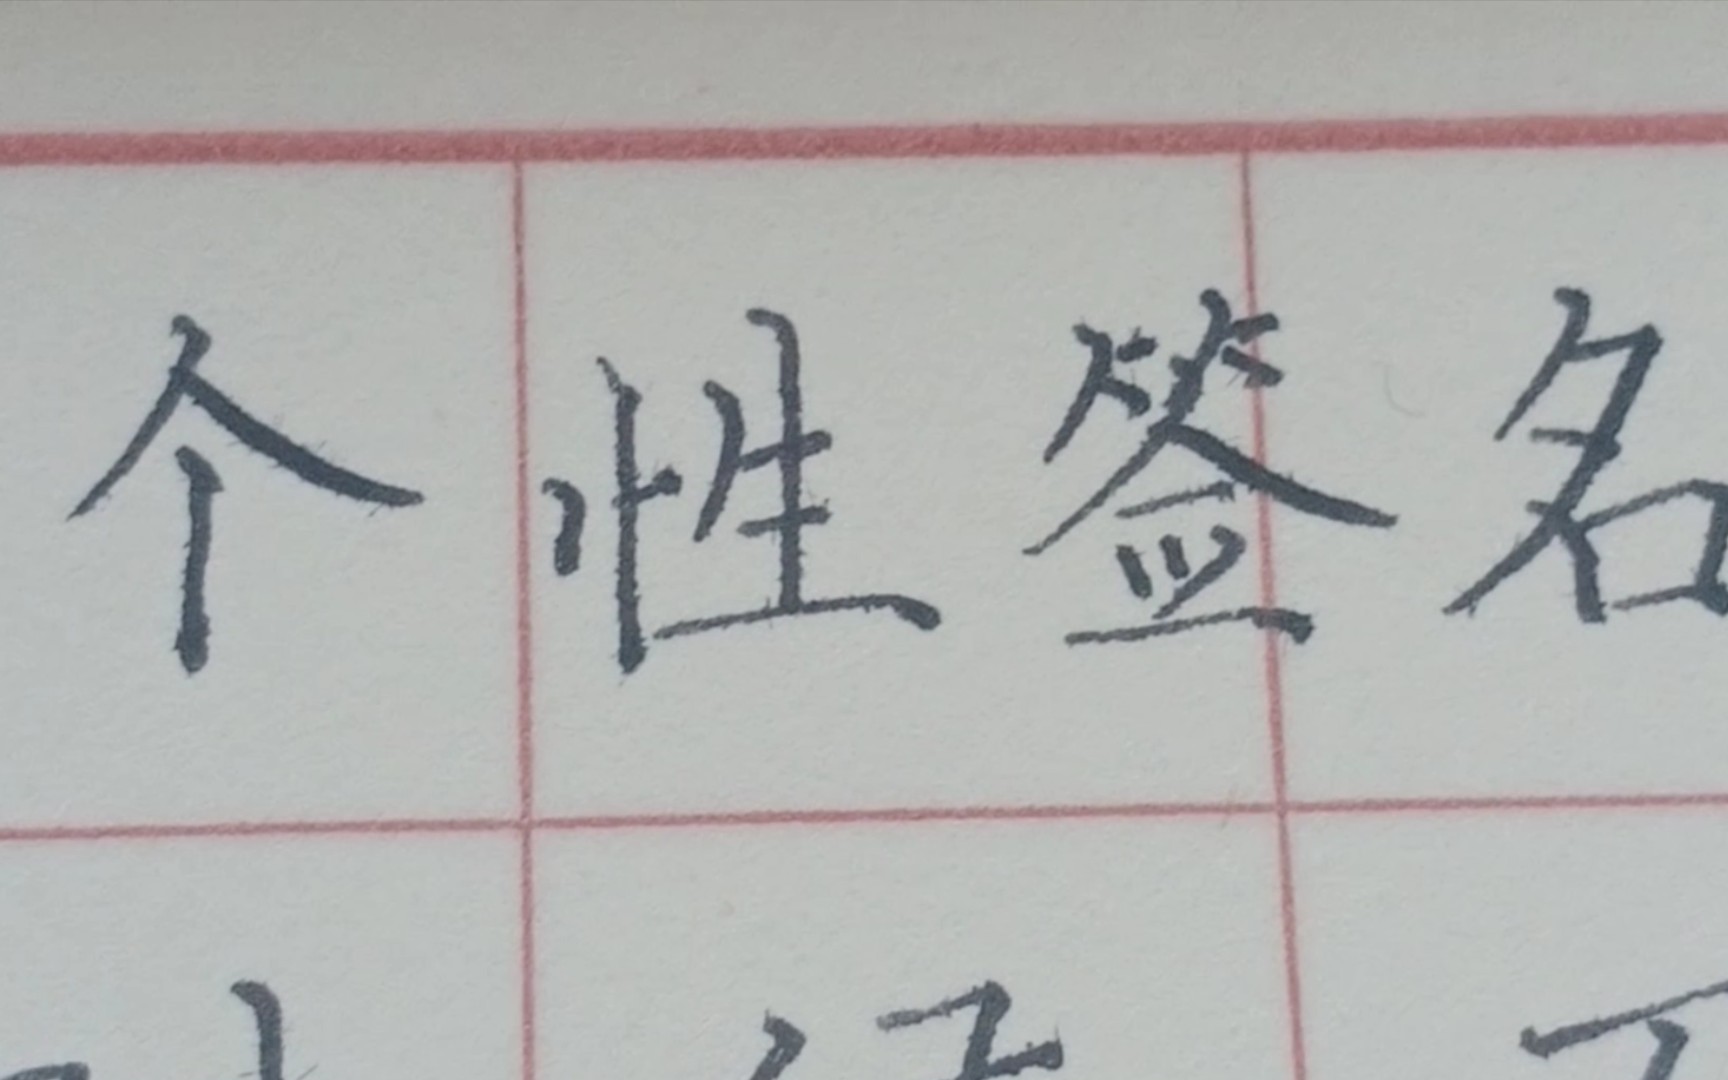 个性签名